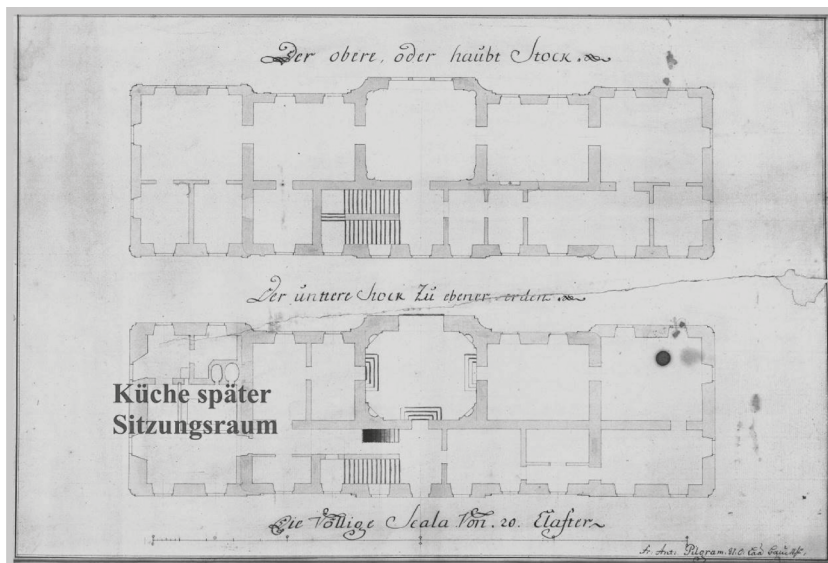 Der obere, oder haubt Stock.
Der unttere Stock Zu ebener erden.
Küche später
Sitzungsraum
Die Völlige Scala Von. 20. Claffter
Pilgram.